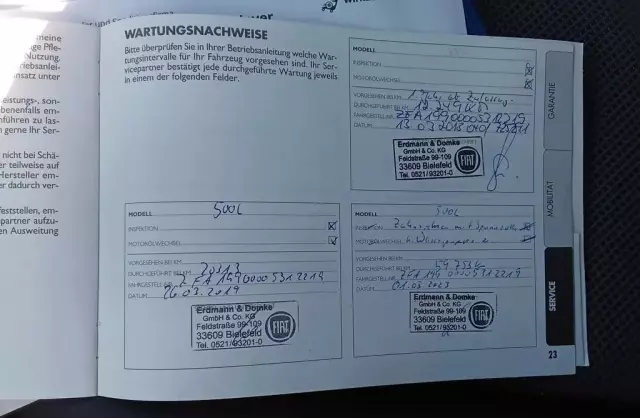 WARTUNGSNACHWEISE
Bitte überprüfen Sie in Ihrer Betriebsanleitung welche War-
tungsintervalle für Ihr Fahrzeug vorgesehen sind. Ihr Ser-
vicepartner bestätigt jede durchgeführte Wartung jeweils
in einem der folgenden Felder.
MODELL
INSPEKTION
MOTORÖLWECHSEL
VORGESEHEN BEI KM 1 Jahr ab Zulassung
DURCHGEFÜHRT BEI KM 12.249 KM
FAHRGESTELLNR. ZFA19900005312219
DATUM 13.03.2018
Erdmann & Domke
GmbH & Co. KG
Feldstraße 99-109
33609 Bielefeld
Tel. 0521/93201-0
FIAT
MODELL 500L
INSPEKTION
MOTORÖLWECHSEL
VORGESEHEN BEI KM
DURCHGEFÜHRT BEI KM
FAHRGESTELLNR. ZFA19900005312219
DATUM 26.03.2019
Erdmann & Domke
GmbH & Co. KG
Feldstraße 99-109
33609 Bielefeld
Tel. 0521/93201-0
FIAT
MODELL 500L
MOTORÖLWECHSEL
VORGESEHEN BEI KM
DURCHGEFÜHRT BEI KM
FAHRGESTELLNR. ZFA19900005312219
DATUM 01.03.2023
Erdmann & Domke
GmbH & Co. KG
Feldstraße 99-109
33609 Bielefeld
Tel. 0521/93201-0
FIAT
GARANTIE
MOBILITÄT
SERVICE
23
meine
ige Pfle-
Nutzung.
insatz unter
eistungs-, son-
ebenenfalls em-
nführen zu las-
n gerne Ihr Ser-
nicht bei Schä-
er teilweise auf
Hersteller em-
er dadurch ver-
feststellen, em-
epartner aufzu-
en Ausweitung